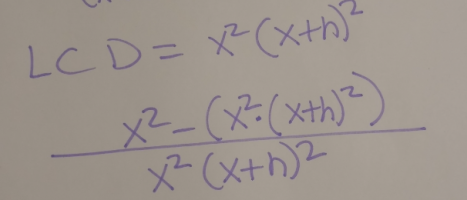 LCD = x²(x+h)²
x² - (x²·(x+h)²)
x²(x+h)²